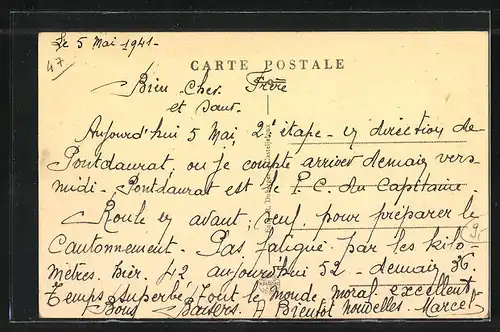 Le 5 Mai 1941-
47
CARTE POSTALE
Bien Cher Frère
et Sœur.
Aujourd'hui 5 Mai 2e étape - en direction de
Pontdaurat, où je compte arriver demain vers
midi - Pontdaurat est le P.C. du Capitaine.
Roule en avant, seul, pour préparer le
Cantonnement. Pas fatigué par les kilo-
mètres. hier. 42 aujourd'hui 52 - demain 36.
Temps superbe, Tout le Monde, moral excellent
Bons Baisers. A Bientôt nouvelles. Marcel